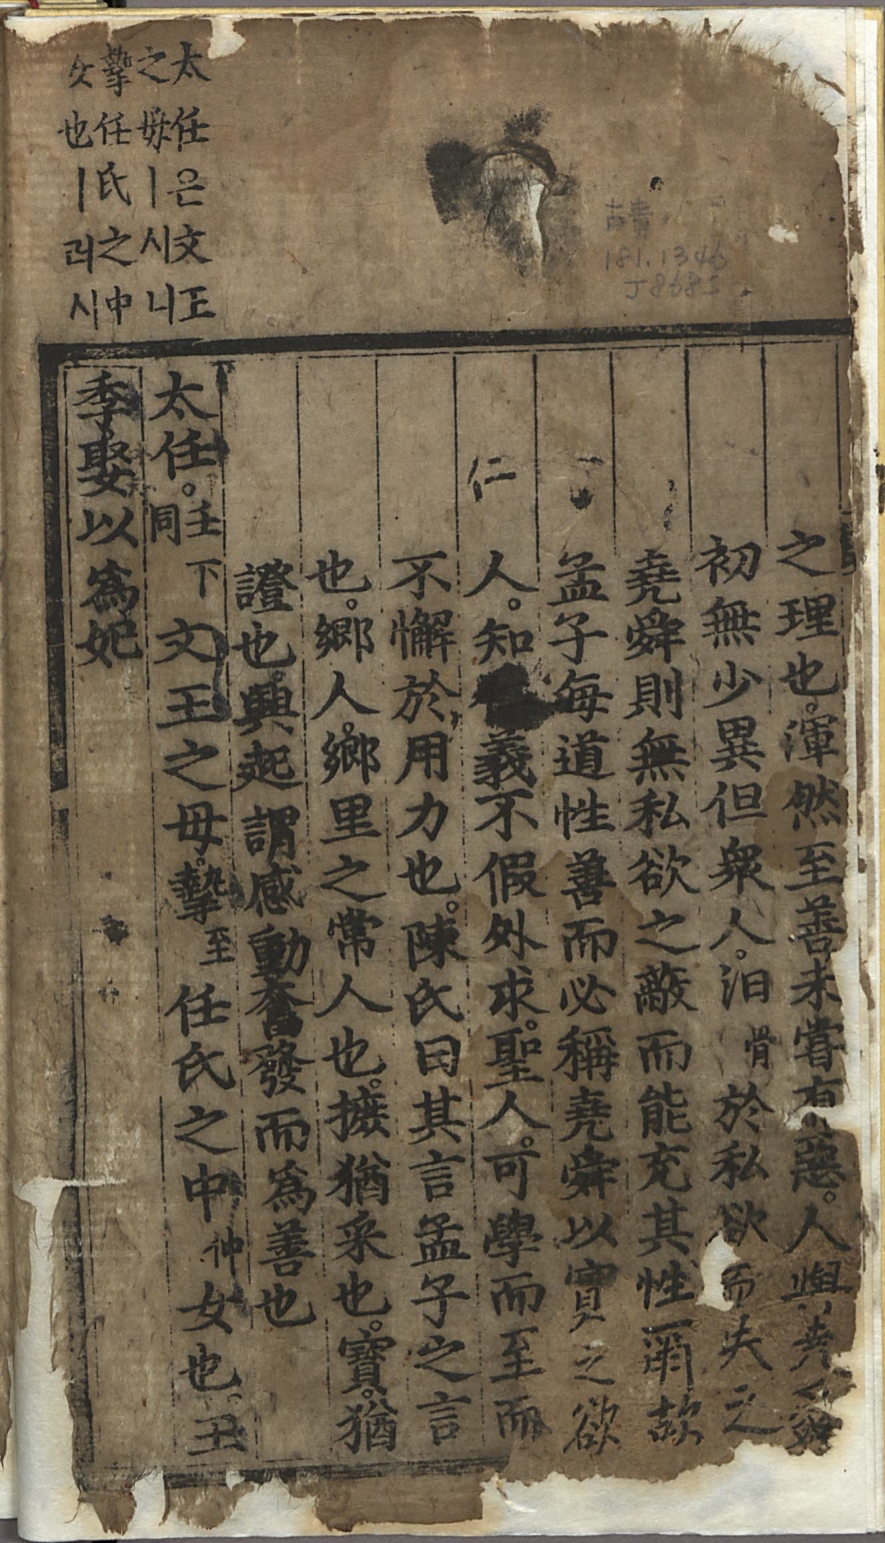 古貴
181.1346
J868s
之理也。渾然至善未嘗有惡。人與堯舜
初無少異但衆人。汨骨於私欲而失之
堯舜則無私欲之蔽而能充其性爾故
孟子每道性善而必稱堯舜以實之欲
仁
人。知義不假外求。聖人。可學而至而
不懈於用力也。陳氏曰其言孟子之言
也。鄕人。鄕里之常人也。據猶采也。實。猶
證也。興起謂感動奮發而爲善也
太任。壬同下文王之母。摯至任氏之中仲女也。王
季娶以爲妃
太任은文王
之母ㅣ시니
摯任氏之中
女也ㅣ러시